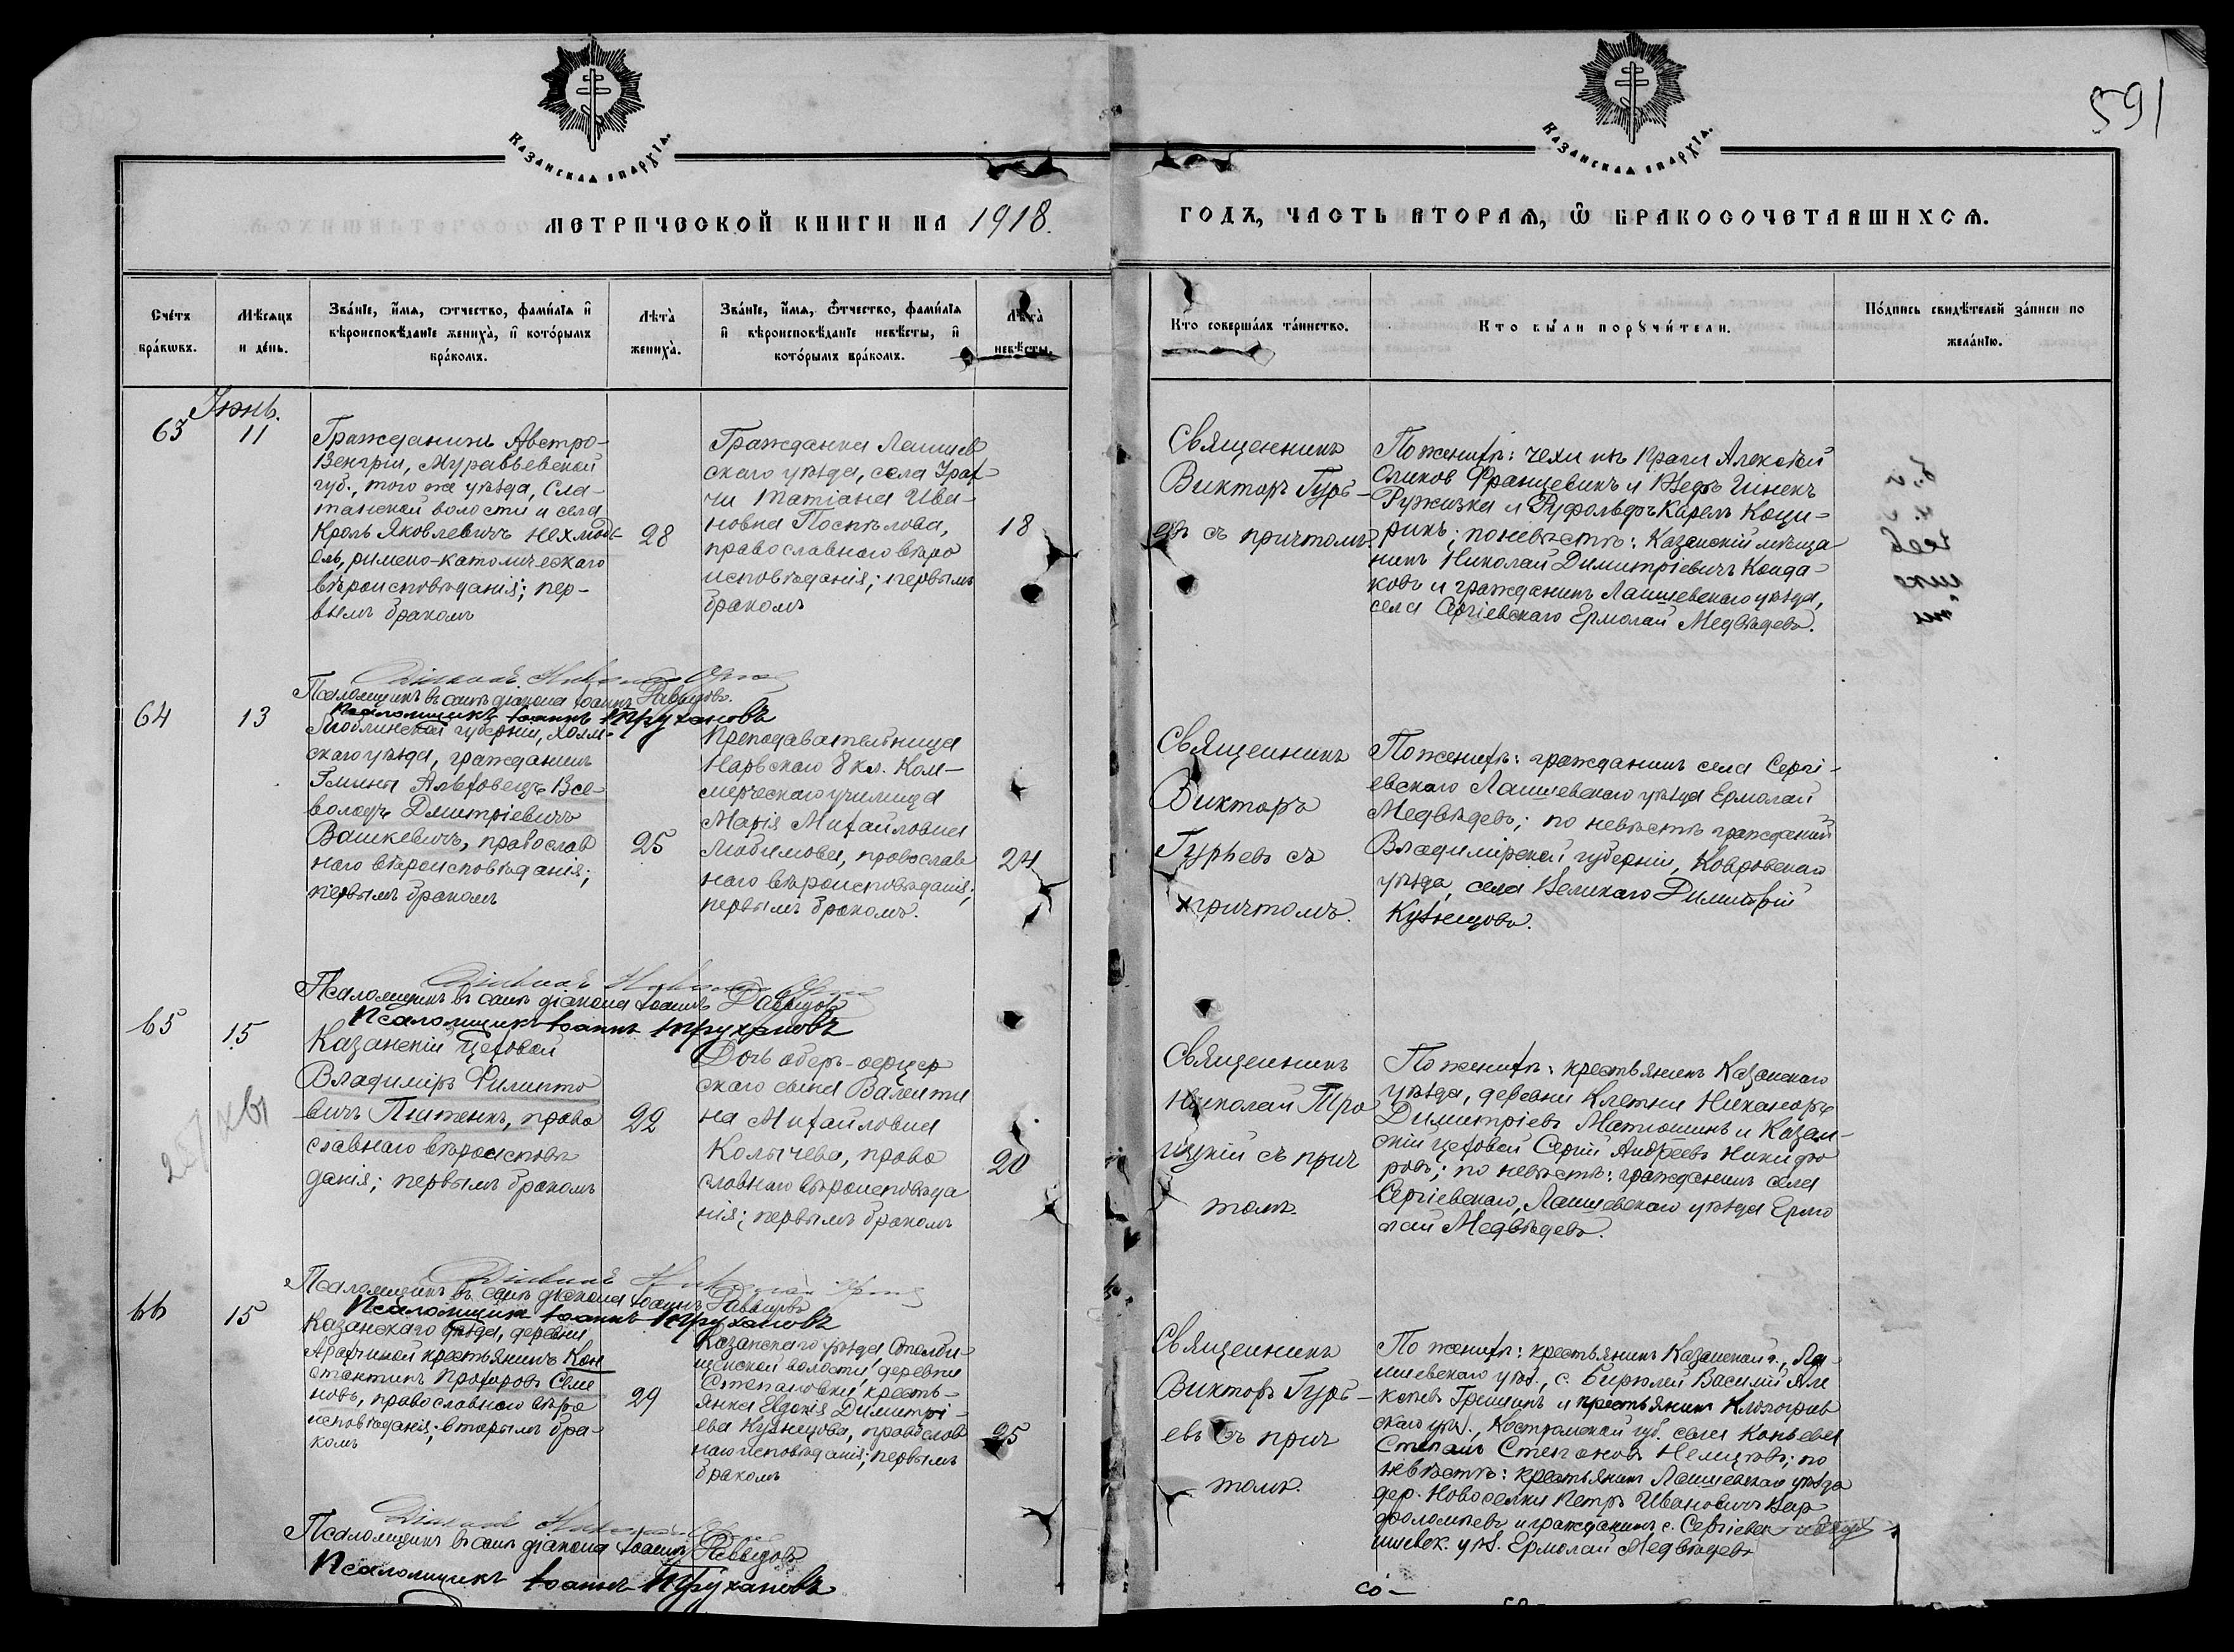 591
КАЗАНСКАЯ ЕПАРХІЯ.
КАЗАНСКАЯ ЕПАРХІЯ.
МЕТРИЧЕСКОЙ КНИГИ НА 1918.
ГОДЪ, ЧАСТЬ ВТОРАЯ, Ѡ БРАКОСОЧЕТАВШИХСЯ.
Счётъ
бра́кѡвъ.
Мѣ́сяцъ
и де́нь.
Зва́нїе, и́мя, ѻтчество, фами́лїя и
вѣроисповѣ́данїе жениха̀, и кото́рымъ
бра́комъ.
Лѣта̀
жениха̀.
Зва́нїе, и́мя, ѻтчество, фами́лїя
и вѣроисповѣ́данїе невѣ́сты, и
кото́рымъ бра́комъ.
Лѣта̀
невѣ́сты.
Кто соверша́лъ та́инство.
Кто бы́ли порꙋчи́тели.
По́дпись свидѣ́телей за́писи по
жела́нїю.
Іюнь.
63
11
Гражданинъ Австро-
Венгріи, Муравьевской
губ., того же уѣзда,
волости и села
Кроль Яковлевичъ
римско-католическаго
вѣроисповѣданія; пер-
вымъ бракомъ
28
Гражданка Лаишев
скаго уѣзда, села
Татіана Ива-
новна Поспѣлова,
православнаго вѣро
исповѣданія; первымъ
бракомъ
18
Священникъ
Викторъ Гурь-
евъ съ причтомъ
По женихѣ: чехи изъ Праги Алексѣй
Францевичъ и
Ружичка и Карелъ
по невѣстѣ: Казанскій мѣща
нинъ Николай Димитріевичъ Конда-
ковъ и гражданинъ Лаишевскаго уѣзда,
села Сергіевскаго Ермолай Медвѣдевъ.
Діаконъ
Псаломщикъ въ санѣ діакона Іоаннъ Давыдовъ.
Псаломщикъ Іоаннъ Трухановъ
64
13
Люблинской губерніи, Холм-
скаго уѣзда, гражданинъ
Гмины Все-
володъ Дмитріевичъ
Вашкевичъ, православ
наго вѣроисповѣданія;
первымъ бракомъ
25
Преподавательница
Нарвскаго 8 кл. Ком-
мерческаго училища
Марія Михайловна
Любимова, православ
наго вѣроисповѣданія;
первымъ бракомъ.
24
Священникъ
Викторъ
Гурьевъ съ
причтомъ.
По женихѣ: гражданинъ села Сергі-
евскаго Лаишевскаго уѣзда Ермолай
Медвѣдевъ; по невѣстѣ гражданинъ
Владимірской губерніи, Ковровскаго
уѣзда, села Великаго Димитрій
Кузнецовъ.
Діаконъ
Псаломщикъ въ санѣ діакона Іоаннъ Давыдовъ
Псаломщикъ Іоаннъ Трухановъ
65
15
Казанскій Цеховой
Владиміръ Филиппо
вичъ Пштенкъ, право
славнаго вѣроисповѣ
данія; первымъ бракомъ
22
Дочь оберъ-офицер
скаго сына Валенти
на Михайловна
Колычева, право
славнаго вѣроисповѣда
нія; первымъ бракомъ
20
Священникъ
Николай Тро
ицкій съ прич
томъ.
По женихѣ: крестьянинъ Казанскаго
уѣзда, деревни Клетни Никаноръ
Димитріевъ Матюшинъ и Казан-
скій цеховой Сергій Андреевъ Никифо
ровъ; по невѣстѣ: гражданинъ села
Сергіевскаго, Лаишевскаго уѣзда Ермо
лай Медвѣдевъ.
Діаконъ
Псаломщикъ въ санѣ діакона Іоаннъ Давыдовъ
Псаломщикъ Іоаннъ Трухановъ
66
15
Казанскаго уѣзда, деревни
крестьянинъ Кон
стантинъ Прохоровъ Семе
новъ, православнаго вѣро
исповѣданія; вторымъ бра-
комъ
29
Казанскаго уѣзда Столби-
щенской волости, деревни
Степановки, кресть-
янка Евдокія Димитрі-
ева Кузнецова, православ
наго исповѣданія; первымъ
бракомъ
25
Священникъ
Викторъ Гурь-
евъ съ прич
томъ.
По женихѣ: крестьянинъ Казанской г., Ла-
ишевскаго уѣз., с. Бирюлей Василій Але
ксѣевъ Гришинъ и крестьянинъ Кологрив
скаго уѣз., Костромской губ. села Коньева
Степанъ Степановъ Немцовъ; по
невѣстѣ: крестьянинъ Лаишевскаго уѣзда
дер. Новоселки Петръ Ивановичъ Вар
фоломеевъ и гражданинъ с. Сергіевск
ишевск. уѣз. Ермолай Медвѣдевъ
Діаконъ
Псаломщикъ въ санѣ діакона Іоаннъ Давыдовъ
Псаломщикъ Іоаннъ Трухановъ
со-